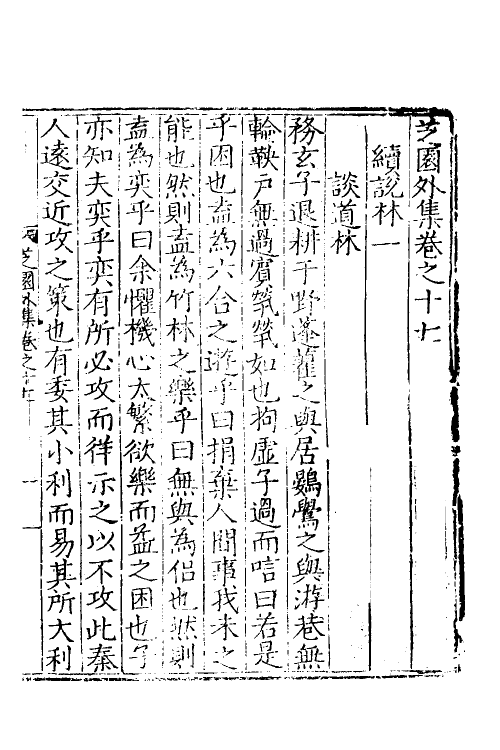 芝園外集卷之十七
續說林一
談道林
務玄子退耕于野蓬藋之與居鷃鷽之與游巷無
輪鞅戶無過賓煢煢如也拘虛子過而唁曰若是
乎困也盍為六合之遊乎曰捐棄人間事我未之
能也然則盍為竹林之樂乎曰無與為侶也然則
盍為奕乎曰余懼機心太繁欲樂而益之困也子
亦知夫奕乎奕有所必攻而佯示之以不攻此秦
人遠交近攻之策也有委其小利而易其所大利
芝園外集卷之十七
一